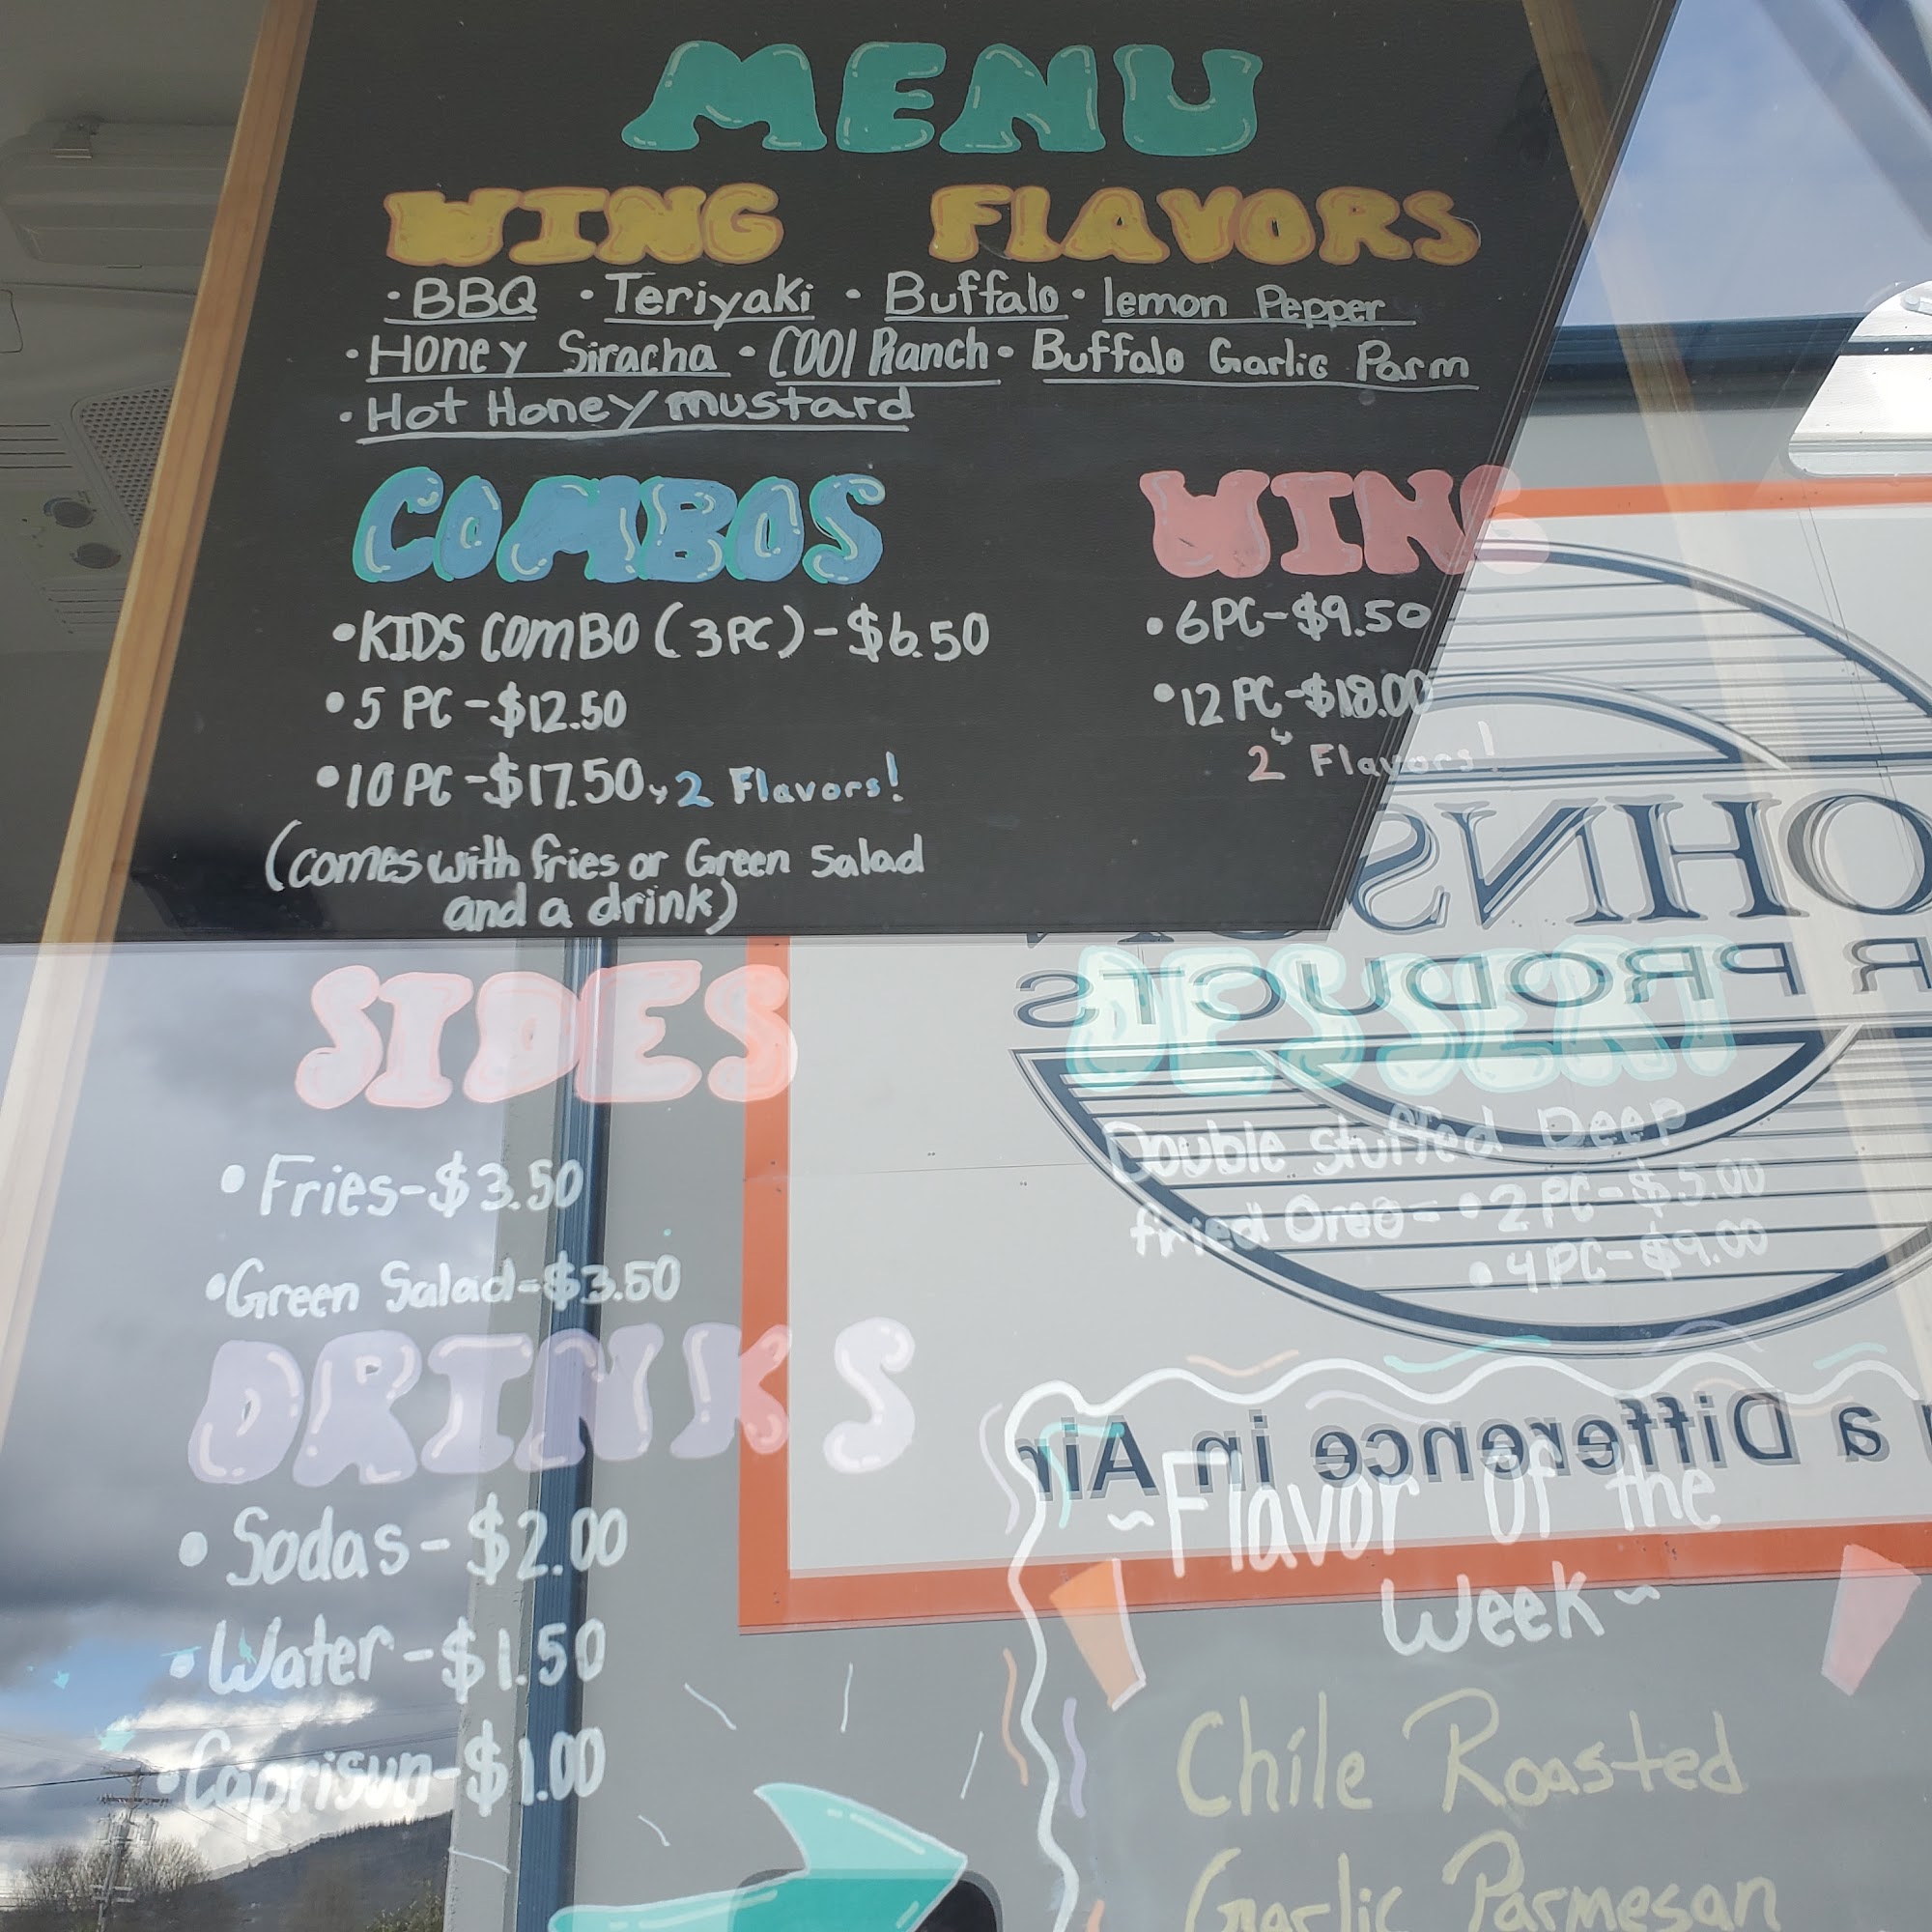 MENU
WING FLAVORS
• BBQ • Teriyaki • Buffalo • lemon Pepper
• Honey Siracha • COOl Ranch • Buffalo Garlic Parm
• Hot Honey mustard
COMBOS
• KIDS COMBO (3PC) - $6.50
• 5 PC - $12.50
• 10 PC - $17.50 2 Flavors!
(comes with fries or Green Salad
and a drink)
WINGS
• 6PC - $9.50
• 12 PC - $18.00
2 Flavors!
SIDES
• Fries - $3.50
• Green Salad - $3.50
DRINKS
• Sodas - $2.00
• Water - $1.50
• Caprisun - $1.00
DESSERT
Double stuffed Deep
fried Oreo - • 2 PC - $5.00
• 4 PC - $9.00
~Flavor Of the
Week~
Chile Roasted
Garlic Parmesan
OHNS
R PRODUCTS
a Difference in Air